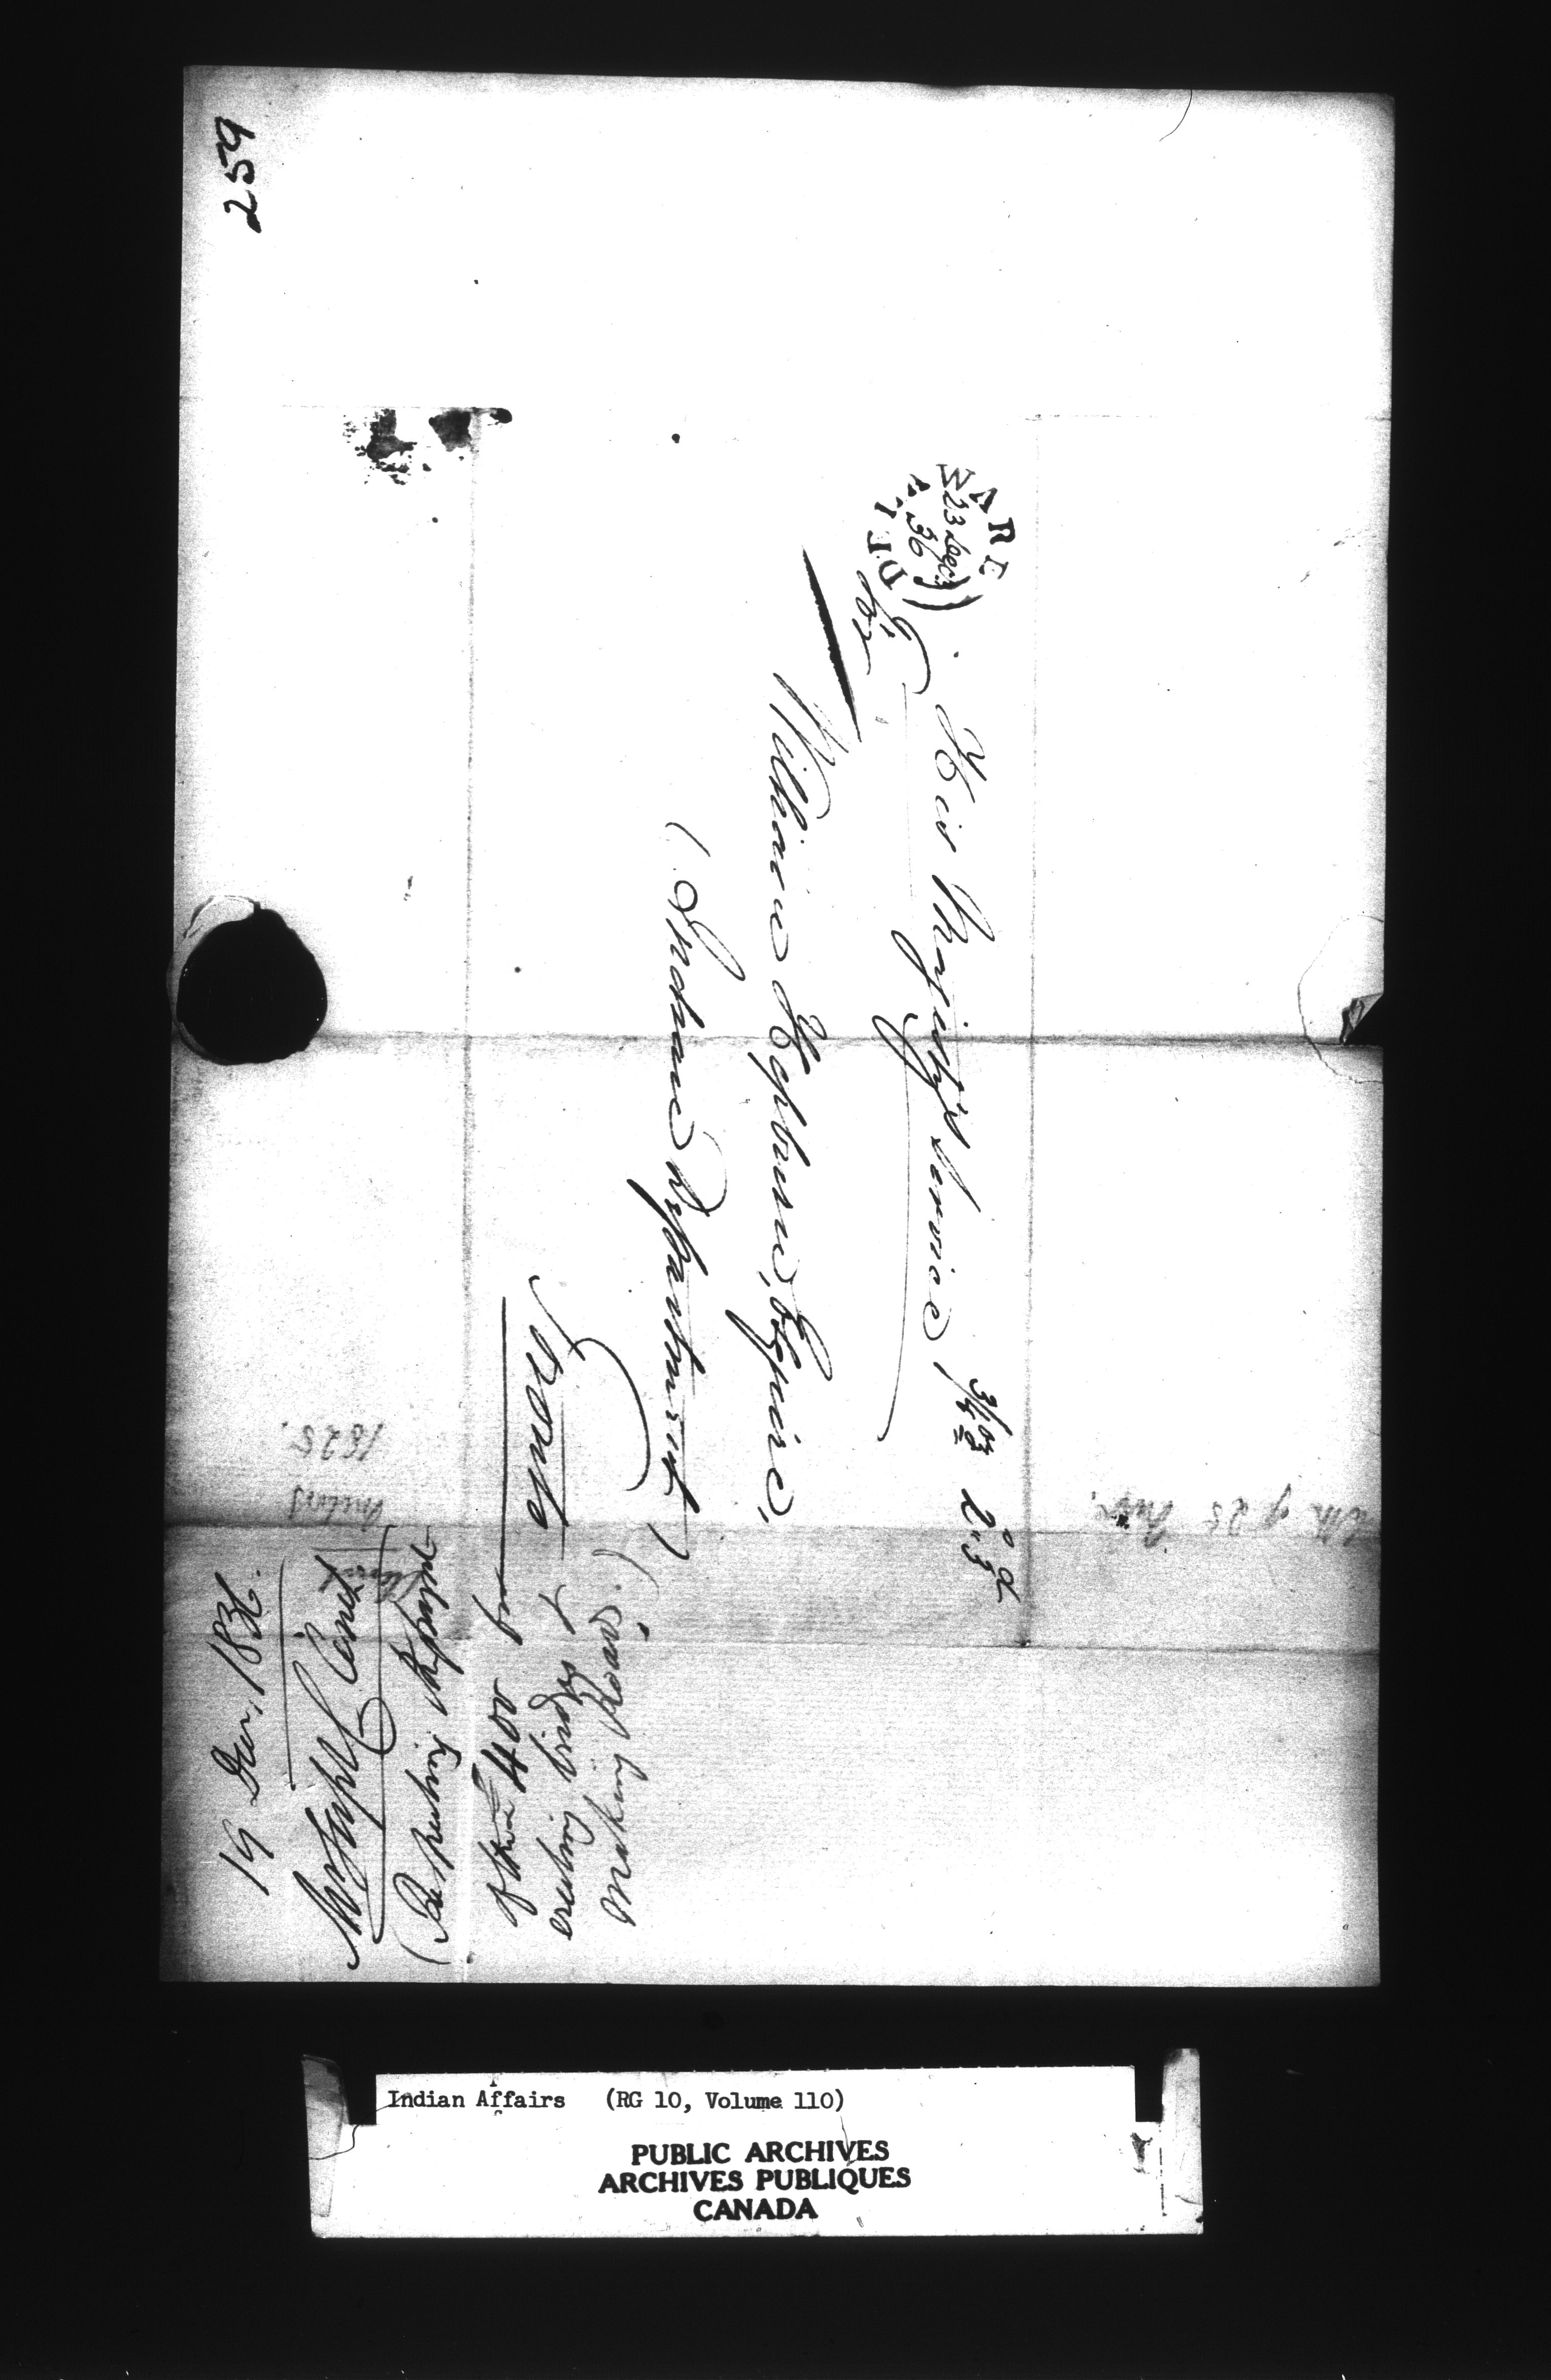 259
DELAWARE
23 Decr
36
His Majesty's Service
3/4 oz 2s 3d
William Hepburn, Esquire,
(Indian Department)
Toronto
19 Decr, 1836.
J. Clench
(Respecting
of the £400 for
erecting bridges &
Making Roads.)
1825.
Indian Affairs (RG 10, Volume 110)
PUBLIC ARCHIVES
ARCHIVES PUBLIQUES
CANADA